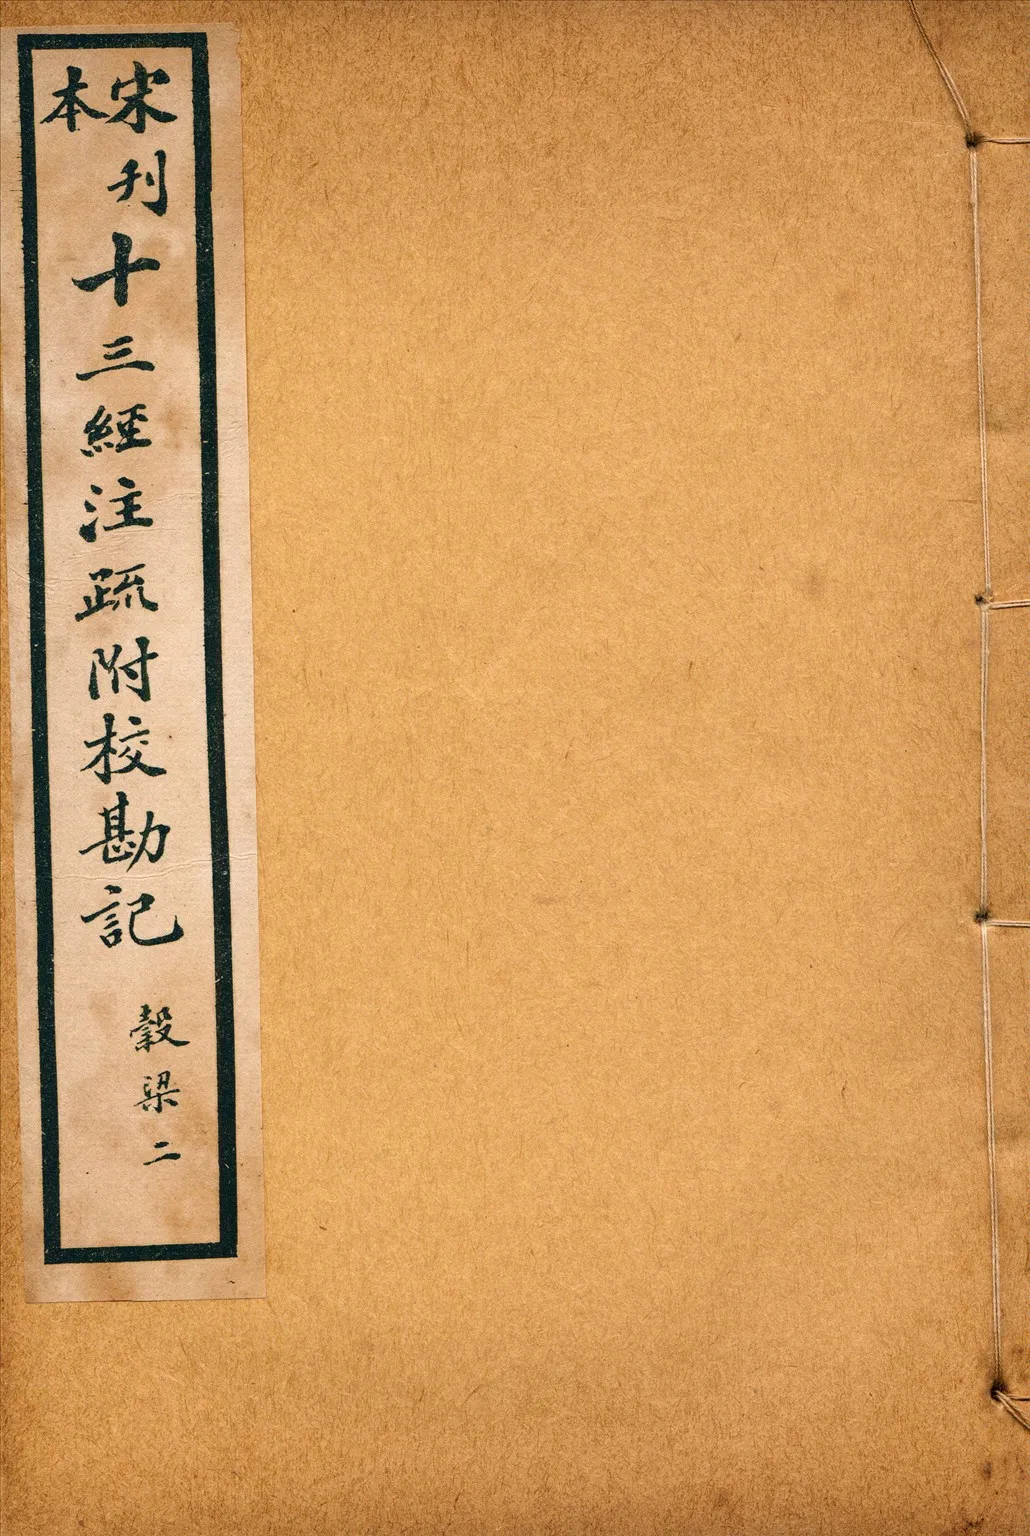 宋本
刊十三經注疏附校勘記
穀梁二